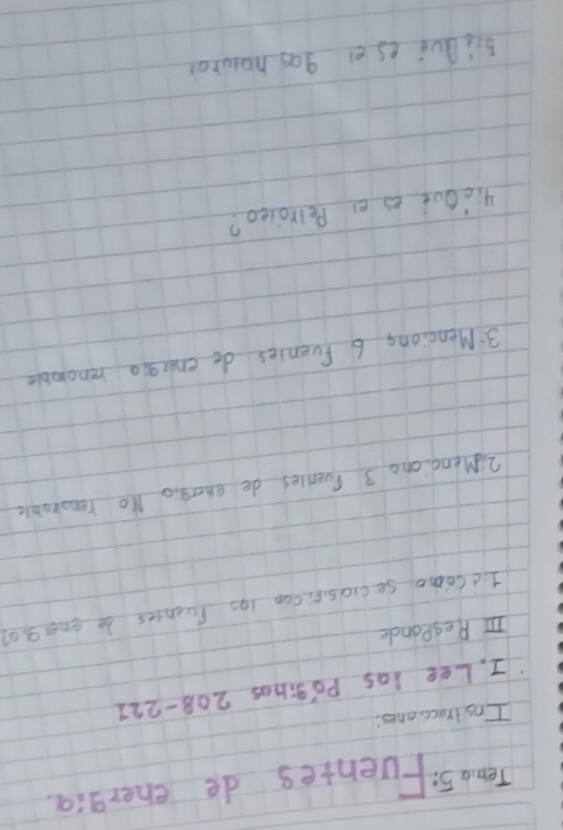 Tema 5: Fuentes de energia.
Instrucciones:
I. Lee las Páginas 208-221
III Responde
1.¿Cómo se clasifican las fuentes de energia?
2.Menciona 3 fuentes de energia No renovable
3.Menciona 6 fuentes de energia renovable
4.¿Qué es el Petroleo?
5.¿Qué es el gas natural